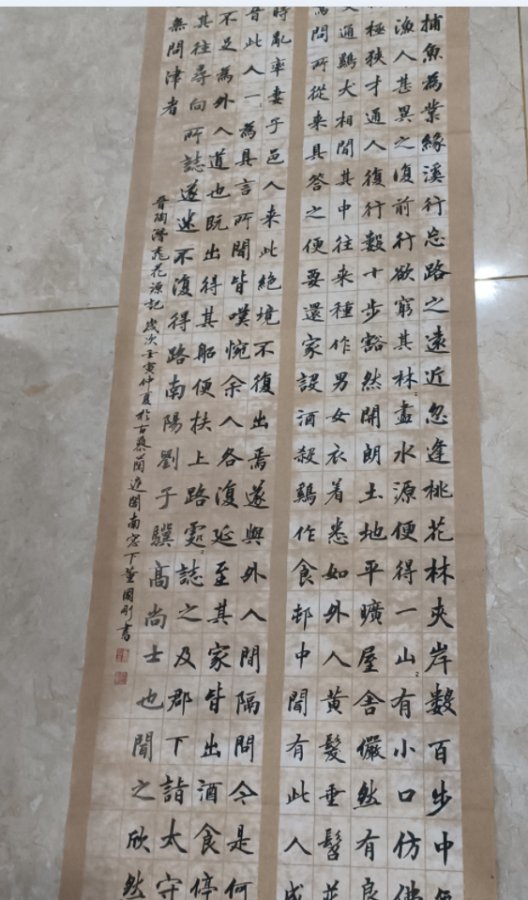 捕魚為業緣溪行忘路之遠近忽逢桃花林夾岸數百步中
漁人甚異之復前行欲窮其林=盡水源便得一山=有小口仿佛
極狹才通人復行數十步豁然開朗土地平曠屋舍儼然有良
通鷄犬相聞其中往来種作男女衣着悉如外人黃髮垂髫並
問所從来具答之便要還家設酒殺鷄作食邨中聞有此人咸
時亂率妻子邑人来此絕境不復出焉遂與外人間隔問今是何
晉此人一=為具言所聞皆嘆惋余人各復延至其家皆出酒食停
不足為外人道也既出得其船便扶上路處=誌之及郡下詣太守
其往尋向所誌遂迷不復得路南陽劉子驥高尚士也聞之欣然
無問津者
晉陶潛桃花源記 歲次壬寅仲夏於古蔡蘭廷閣南窓下董國剛書